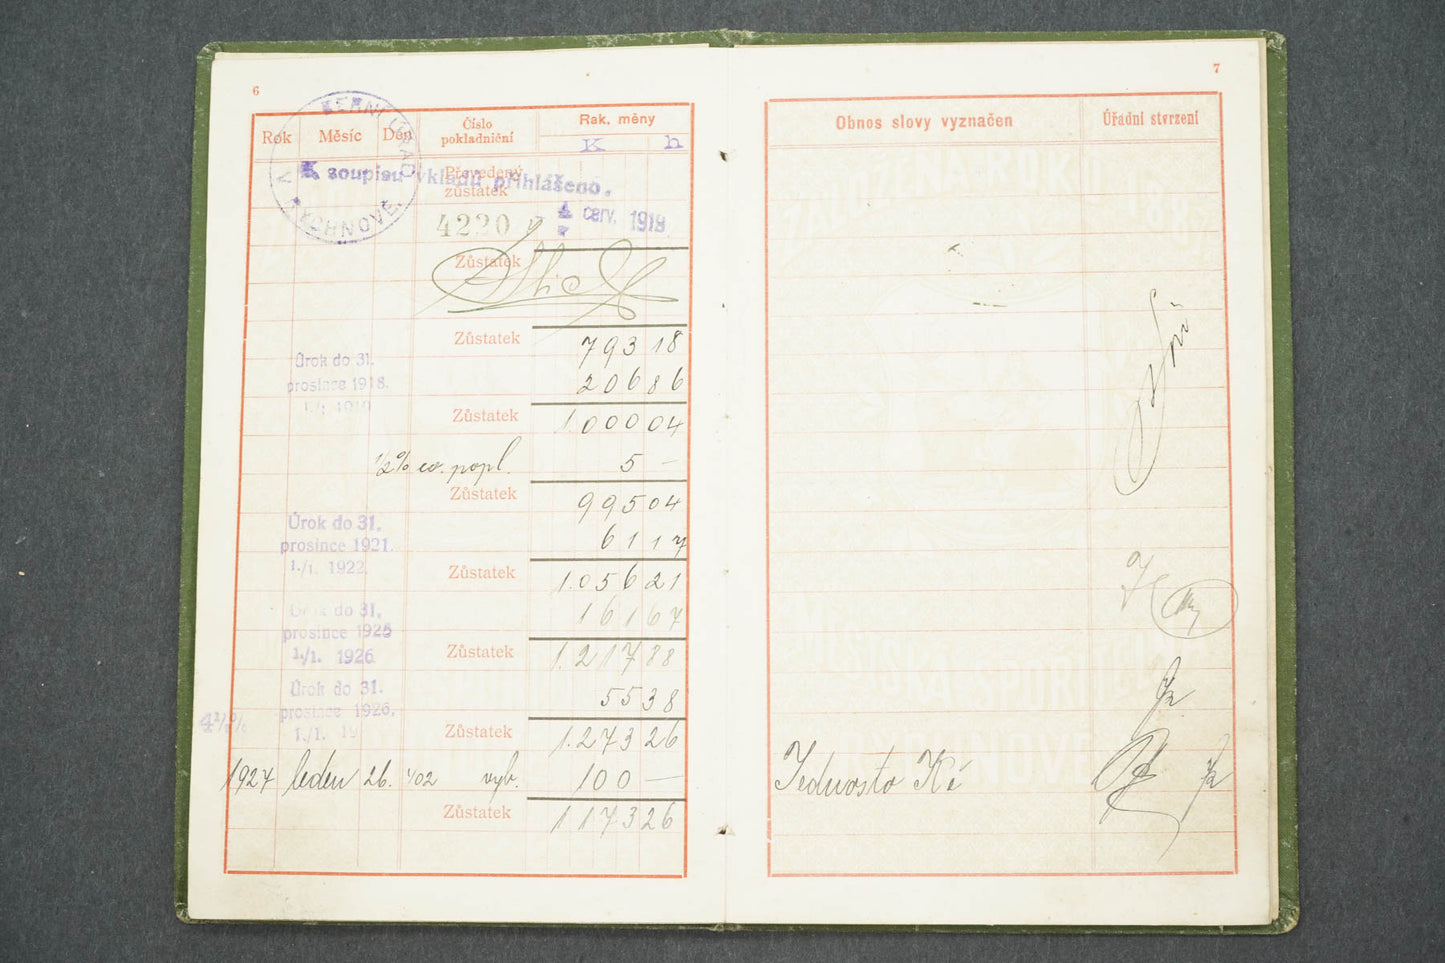 6
Rok Měsíc Den Číslo pokladniční Rak. měny
K h
BERNÍ ÚŘAD V RYCHNOVĚ
Převedený zůstatek
K soupisu vkladů přihlášeno.
4220 4 červ. 1919
Zůstatek
Zůstatek 793 18
Úrok do 31. prosince 1918. 1./1. 1919 206 86
Zůstatek 1.000 04
1/2% popl. 5 —
Zůstatek 995 04
Úrok do 31. prosince 1921. 1./1. 1922. 61 17
Zůstatek 1.056 21
Úrok do 31. prosince 1925 1./1. 1926 161 67
Zůstatek 1.217 88
4½% Úrok do 31. prosince 1926. 1./1. 19 55 38
Zůstatek 1.273 26
1927 leden 26. 402 vyb. 100 —
Zůstatek 1173 26
7
Obnos slovy vyznačen Úřadní stvrzení
Jednosto Kč